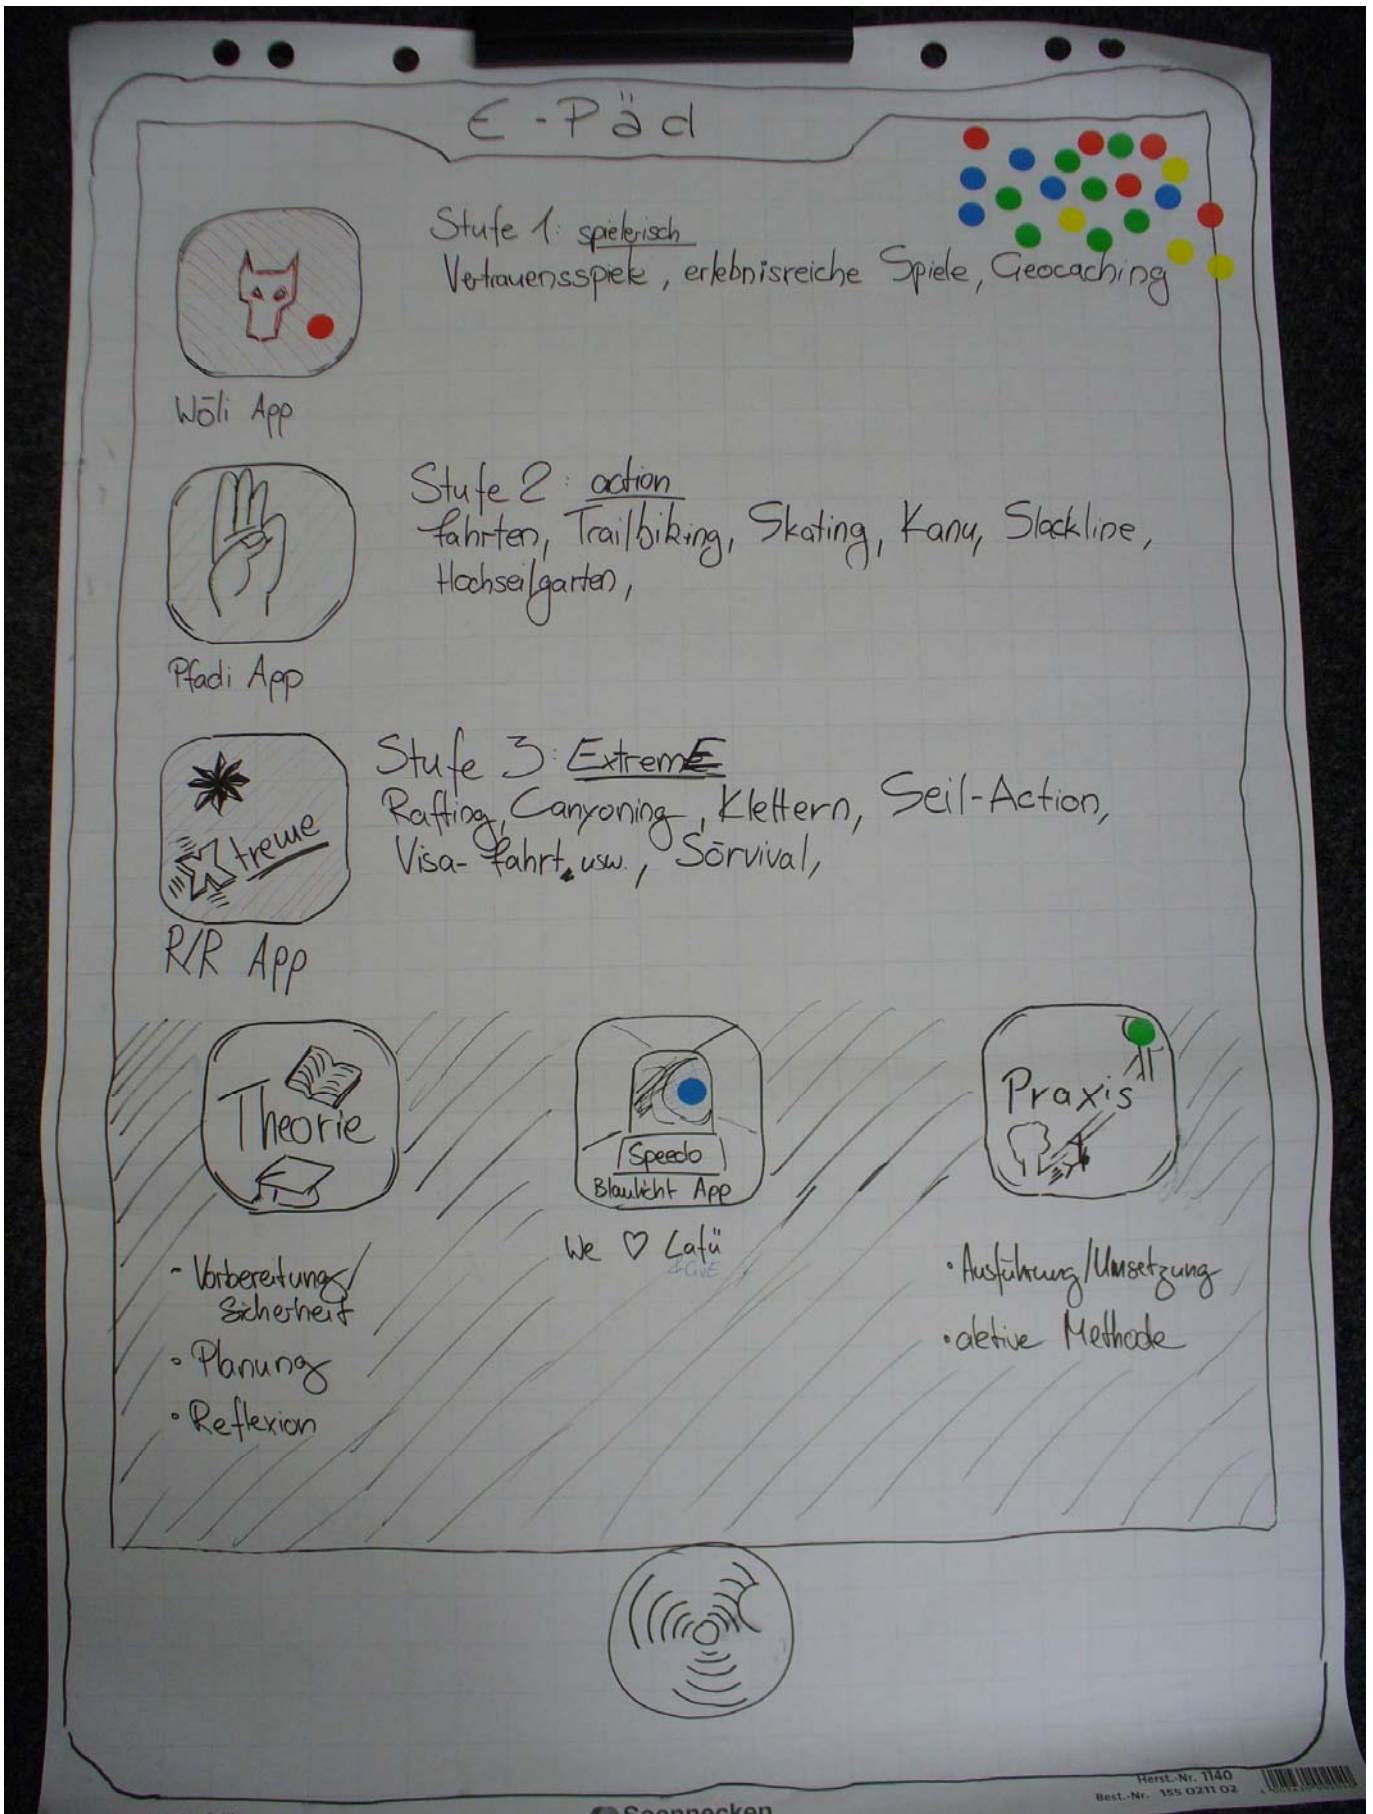 E-Päd
Stufe 1: spielerisch
Vertrauensspiele, erlebnisreiche Spiele, Geocaching
Wōli App
Stufe 2: action
fahrten, Trailbiking, Skating, Kanu, Slackline,
Hochseilgarten,
Pfadi App
Stufe 3: ExtremE
Rafting, Canyoning, Klettern, Seil-Action,
Visa-fahrt usw., Sōrvival,
Xtreme
R/R App
Theorie
Speedo
Blaulicht App
Praxis
We ♡ Lafü
- Vorbereitung/
Sicherheit
• Planung
• Reflexion
• Ausführung/Umsetzung
• aktive Methode
Herst.-Nr. 1140
Best.-Nr. 155 0211 02
Soennecken